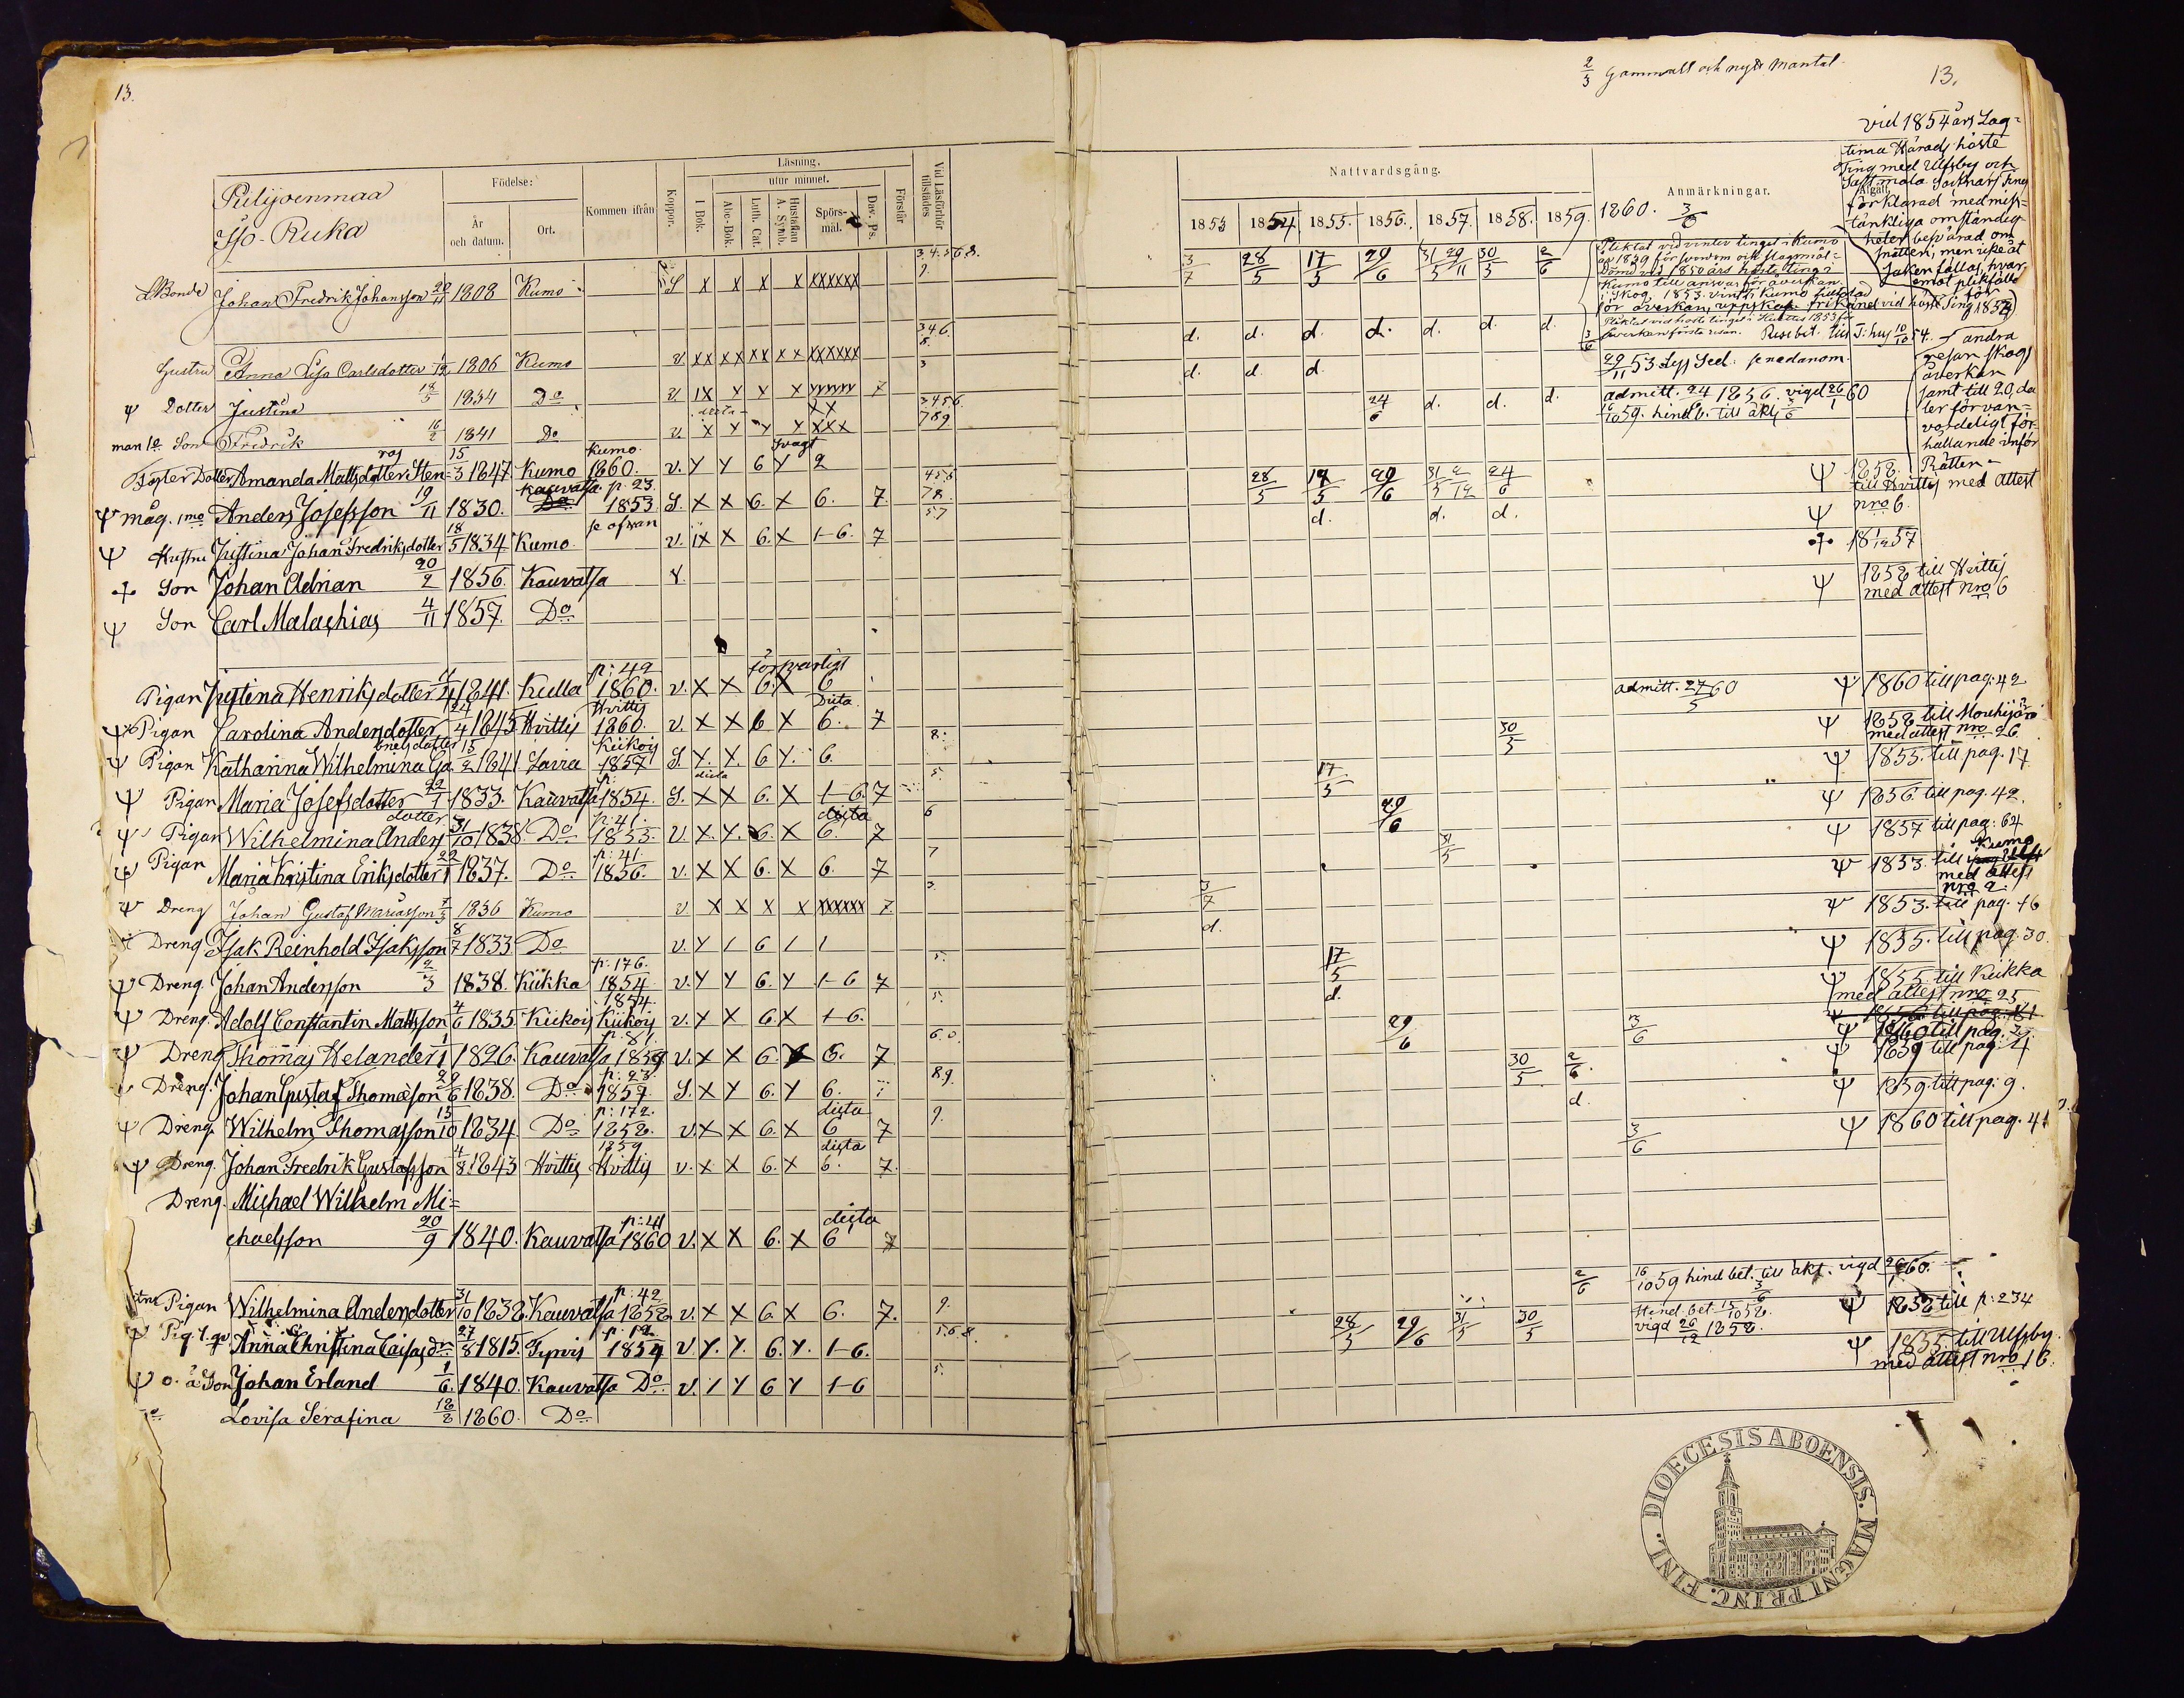 13.
Pulijoenmaa
Iso-Ruka
Födelse:
År och datum.
Ort.
Kommen ifrån
Koppor.
Läsning.
utur minnet.
I Bok.
Abc-Bok.
Luth. Cat.
Hustaflan A. Symb.
Spörs-mål.
Dav. Ps.
Förstår
Vid Läsförhör tillstädes
Bonde Johan Fredrik Johansson 20/11 1808 Kumo S x x x x xxxxxx 3.4.5.6.8. 9.
Hustru Anna Lisa Carlsdotter 1806 Kumo v. xx xx xx x x xxxxxx 3 4 6. 8.
Ψ Dotter Justina 18/5 1834 Do v 1x x x x xxxxxx 7 3
man 1o Son Fredrik 16/2 1841 Do v. x x x x xxx 3 4 5 6. 7 8 9
Foster Dotter Amanda Mattsdotter Sten=roj 15/3 1847 Kumo Kumo 1860. v. x x 6 x svagt 2
Ψ måg. 1mo Anders Josefsson 19/11 1830. Kauvatsa p. 23. 1853. S. x x 6. x 6. 7. 4 5 6 7 8.
Ψ Hustru Justina Johan Fredriksdotter 18/5 1834 Kumo. se ofvan v. 1x x 6. x 1-6. 7 5 7
+ Son Johan Adrian 20/2 1856. Kauvatsa v.
Ψ Son Carl Malachias 4/11 1857. Do
Pigan Justina Henriksdotter 1841. Kulla p: 49 1860. v. x x 6. x försvarligt 6
Ψ Pigan Carolina Andersdotter 24/4 1845 Hvittis Hvittis 1860. v. x x 6 x Dita 6. 7
Ψ Pigan Katharina Wilhelmina Ga=brielsdotter 15/2 1841 Lavia Kiikois 1857 S. x. x 6 x. 6. 8.
Ψ Pigan Maria Josefsdotter 22/1 1833. Kauvatsa p: 1854. S. x x 6. x 1-6. 7 5.
Ψ Pigan Wilhelmina Anders dotter 31/10 1838. Do p: 41. 1855. v. x x. 6. x dista 6. 7 6
Ψ Pigan Maria Kristina Eriksdotter 22/1 1837. Do p: 41. 1856. v. x x 6. x 6. 7 7
Ψ Dreng Johan Gustaf Mariasson 7/3 1836 Kumo v. x x x x xxxxxx 7. 3.
Dreng Isak Reinhold Isaksson 8/7 1833 Do v. x 1 6 1 1
Ψ Dreng. Johan Andersson 2/3 1838. Kiikka p: 176. 1854 v. x x 6. x 1-6 7 5.
Ψ Dreng. Adolf Constantin Mattsson 4/6 1835 Kiikois 1854. Kiikois v. x x 6. x 1-6. 5.
Ψ Dreng Thomas Helander 1/1 1826. Kauvatsa p: 81. 1859 v. x x 6. x 6. 7 6.
Dreng. Johan Gustaf Thomasson 29/6 1838. Do p: 23. 1857. S. x x 6. x 6. 8 9.
Ψ Dreng. Wilhelm Thomasson 15/10 1834 Do p: 172. 1858. v. x x 6. x dista 6 7 9.
Ψ Dreng. Johan Fredrik Gustafsson 4/8 1843 Hvittis 1859 Hvittis v. x x 6. x dista 6. 7.
Dreng. Michael Wilhelm Mi=
chaelsson 20/9 1840. Kauvatsa p: 41 1860 v. x x 6. x dista 6 7
Pigan Wilhelmina Andersdotter 31/10 1838. Kauvatsa p: 42 1858 v. x x 6. x 6. 7. 9.
Anna Christina Caisasdr 27/8 1815. Tyrvis p: 12. 1854 v. x. x. 6. x. 1-6. 5.6 8.
Ψ o. ä Son Johan Erland 1/6. 1840. Kauvatsa Do v. 1 x 6 x 1-6 5.
Lovisa Serafina 18/8 1860. Do
2/3 Gammalt och nytt mantal.
13.
Nattvardsgång.
Anmärkningar.
Afgått.
1853 1854 1855. 1856. 1857. 1858. 1859. 1860. 3/6
vid 1854 års Lag=
tima Härads höste
Ting med Ulfsby och
Sastmola Socknars Ting
förklarad med miss=
tänkliga omständig
heter besvärad om
mätten, men icke åt
saken fällas, hvar
emot pliktfälld
för
andra
resan skogs
åverkan
samt till 20, da
ler för van=
vördeligt för=
hållande inför
Rätten
3/7 28/5 17/5 29/6 31/5 29/11 30/5 2/6
Pliktat vid vinter tinget i Kumo
år 1839 för svordom och slagsmål=
Dömd vid 1850 års höste ting i
Kumo till ansvar för åverkan
i skog. 1853. vint. Kumo tilltalad
för åverkan, uppskof. frikänd vid höste Ting 1852
d. d. d. d. d. d. d.
Pliktat vid höste tinget i Hvittis 1853 för
åverkan första resan. Puse bet. till T: hus 10/10 54.
d. d. d.
29/11 53 Lys Sed. se nedanom.
24/6 d. d. d. admitt. 24/6 1856. vigd 26/1 60
16/10 59. hind b. till äkt. 3/6
28/5 17/5 29/6 31/5 2/12 24/6 Ψ 1858. till Hvittis med attest nro 6.
d. d. d. Ψ
+ 18 1/12 57
Ψ 1858 till Hvittis
med attest nro 6
admitt. 27/5 60 Ψ 1860 till pag: 42
30/5 Ψ 1858 till Mouhijärvi
med attest nro 26
17/5 Ψ 1855. till pag. 17
29/6 Ψ 1856. till pag. 42.
31/5 Ψ 1857 till pag: 64
3/7 Ψ 1853. till Kumo
med attest
nro 2
d. Ψ 1853. till pag. 16
17/5 Ψ 1855. till pag. 30.
d. Ψ 1855. till Kiikka
med attest nro 25
29/6 3/6 Ψ 1860 till pag.
30/5 2/6. Ψ 1859 till pag: 4
d. Ψ 1859. till pag: 9.
3/6 Ψ 1860 till pag. 41
2/6 16/10 59 hind bet. till äkt. vigd 26/1 60.
28/5 29/6 31/5 30/5 Hind. bet. 15/10 58. Ψ 1858 till p: 234
vigd 26/12 1858.
Ψ 1855. till Ulfsby.
med attest nro 16.
DIOECESIS ABOENSIS. MAGNI PRINC. FINL.